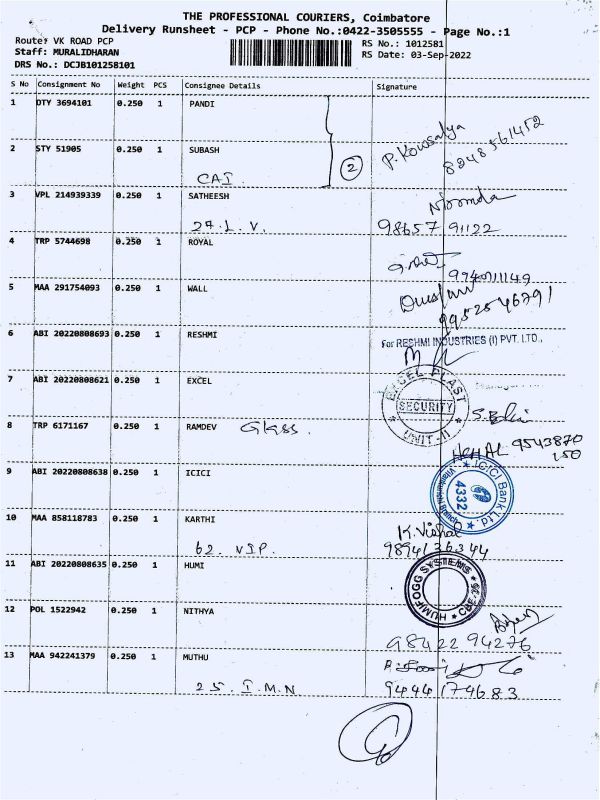 THE PROFESSIONAL COURIERS, Coimbatore
Delivery Runsheet - PCP - Phone No.:0422-3505555 - Page No.:1
Route: VK ROAD PCP
RS No.: 1012581
Staff: MURALIDHARAN
RS Date: 03-Sep-2022
DRS No.: DCJB101258101
S No Consignment No Weight PCS Consignee Details Signature
1 DTY 3694101 0.250 1 PANDI
2 STY 51905 0.250 1 SUBASH P. Kowsalya
2 8248561452
CAI
3 VPL 214939339 0.250 1 SATHEESH
27. L. V. 98657 91122
4 TRP 5744698 0.250 1 ROYAL
5 MAA 291754093 0.250 1 WALL
9952546791
6 ABI 20220808693 0.250 1 RESHMI For RESHMI INDUSTRIES (I) PVT. LTD.,
7 ABI 20220808621 0.250 1 EXCEL EXCEL PLAST
SECURITY
UNIT-II
8 TRP 6171167 0.250 1 RAMDEV Glass.
9543870
150
9 ABI 20220808638 0.250 1 ICICI ICICI Bank Ltd.
4332
10 MAA 858118783 0.250 1 KARTHI K. Vishal
62. VIP. 9894136344
11 ABI 20220808635 0.250 1 HUMI HUMIFOGG SYSTEMS
12 POL 1522942 0.250 1 NITHYA
98422 94276
13 MAA 942241379 0.250 1 MUTHU
25. I.M.N 9444174683